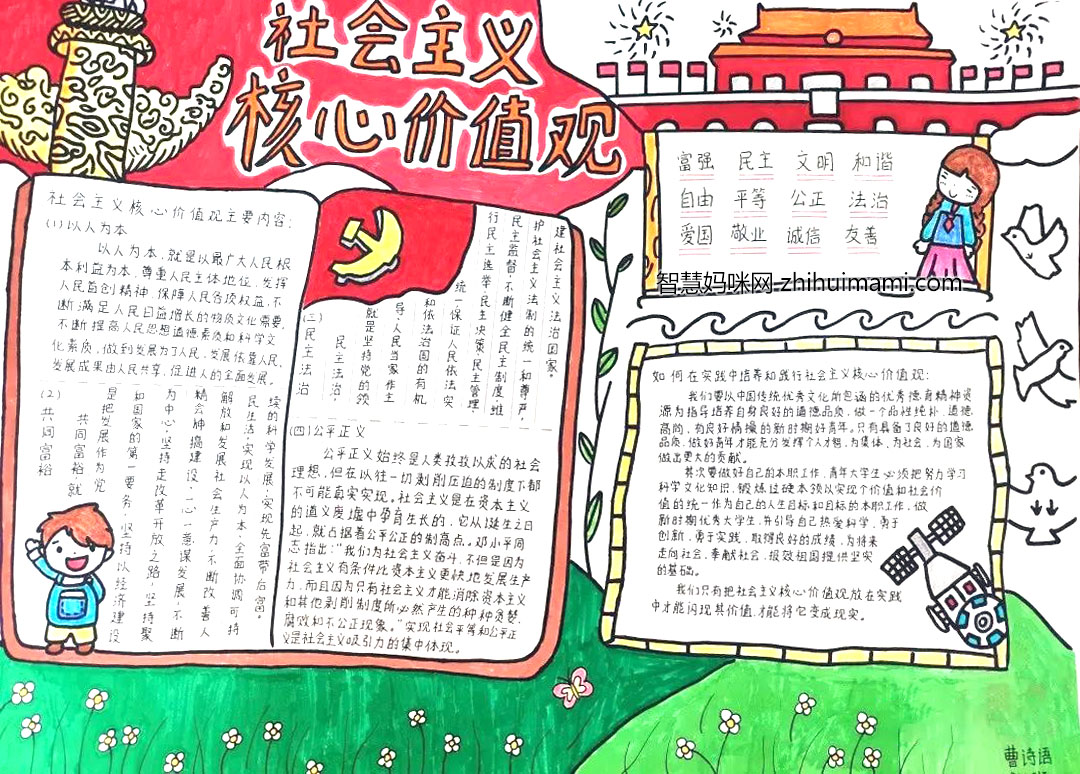 社会主义
核心价值观
社会主义核心价值观主要内容:
(1)以人为本
以人为本,就是以最广大人民根
本利益为本,尊重人民主体地位,发挥
人民首创精神,保障人民各项权益,不
断满足人民日益增长的物质文化需要,
不断提高人民思想道德素质和科学文
化素质,做到发展为了人民,发展依靠人民,
发展成果由人民共享,促进人的全面发展。
(2)共同富裕
共同富裕就
是把发展作为党
和国家的第一要务,坚持以经济建设
为中心,坚持走改革开放之路,坚持聚
精会神搞建设,一心一意谋发展,不断
解放和发展社会生产力,不断改善人
民生活,实现以人为本、全面协调可持
续的科学发展,实现先富带后富。
(三)民主法治
民主法治,
就是坚持党的领
导、人民当家作主
和依法治国的有机
统一,保证人民依法实
行民主选举、民主决策、民主管理、
民主监督,不断健全民主制度,维
护社会主义法制的统一和尊严,
建社会主义法治国家。
(四)公平正义
公平正义始终是人类孜孜以成的社会
理想,但在以往一切剥削压迫的制度下都
不可能真实实现。社会主义是在资本主义
的道义废墟中孕育生长的,它从诞生之日
起,就占据着公平公正的制高点。邓小平同
志指出:“我们为社会主义奋斗,不但是因为
社会主义有条件比资本主义更快地发展生产
力,而且因为只有社会主义才能消除资本主义
和其他剥削制度所必然产生的种种贪婪、
腐败和不公正现象。”实现社会平等和公平正
义是社会主义吸引力的集中体现。
富强 民主 文明 和谐
自由 平等 公正 法治
爱国 敬业 诚信 友善
智慧妈咪网 zhihuimami.com
如何在实践中培养和践行社会主义核心价值观:
我们要以中国传统优秀文化所包涵的优秀德育精神资
源为指导培养自身良好的道德品质,做一个品性纯朴、道德
高尚、有良好情操的新时期好青年。只有具备了良好的道德
品质,做好青年才能充分发挥个人才智,为集体、为社会、为国家
做出更大的贡献。
其次要做好自己的本职工作,青年大学生必须把努力学习
科学文化知识,锻炼过硬本领以实现个价值和社会价
值的统一作为自己的人生目标和目标的本职工作,做
新时期优秀大学生,并引导自己热爱科学,勇于
创新,勇于实践,取得良好的成绩,为将来
走向社会、奉献社会、报效祖国提供坚实
的基础。
我们只有把社会主义核心价值观放在实践
中才能闪现其价值,才能将它变成现实。
曹诗语